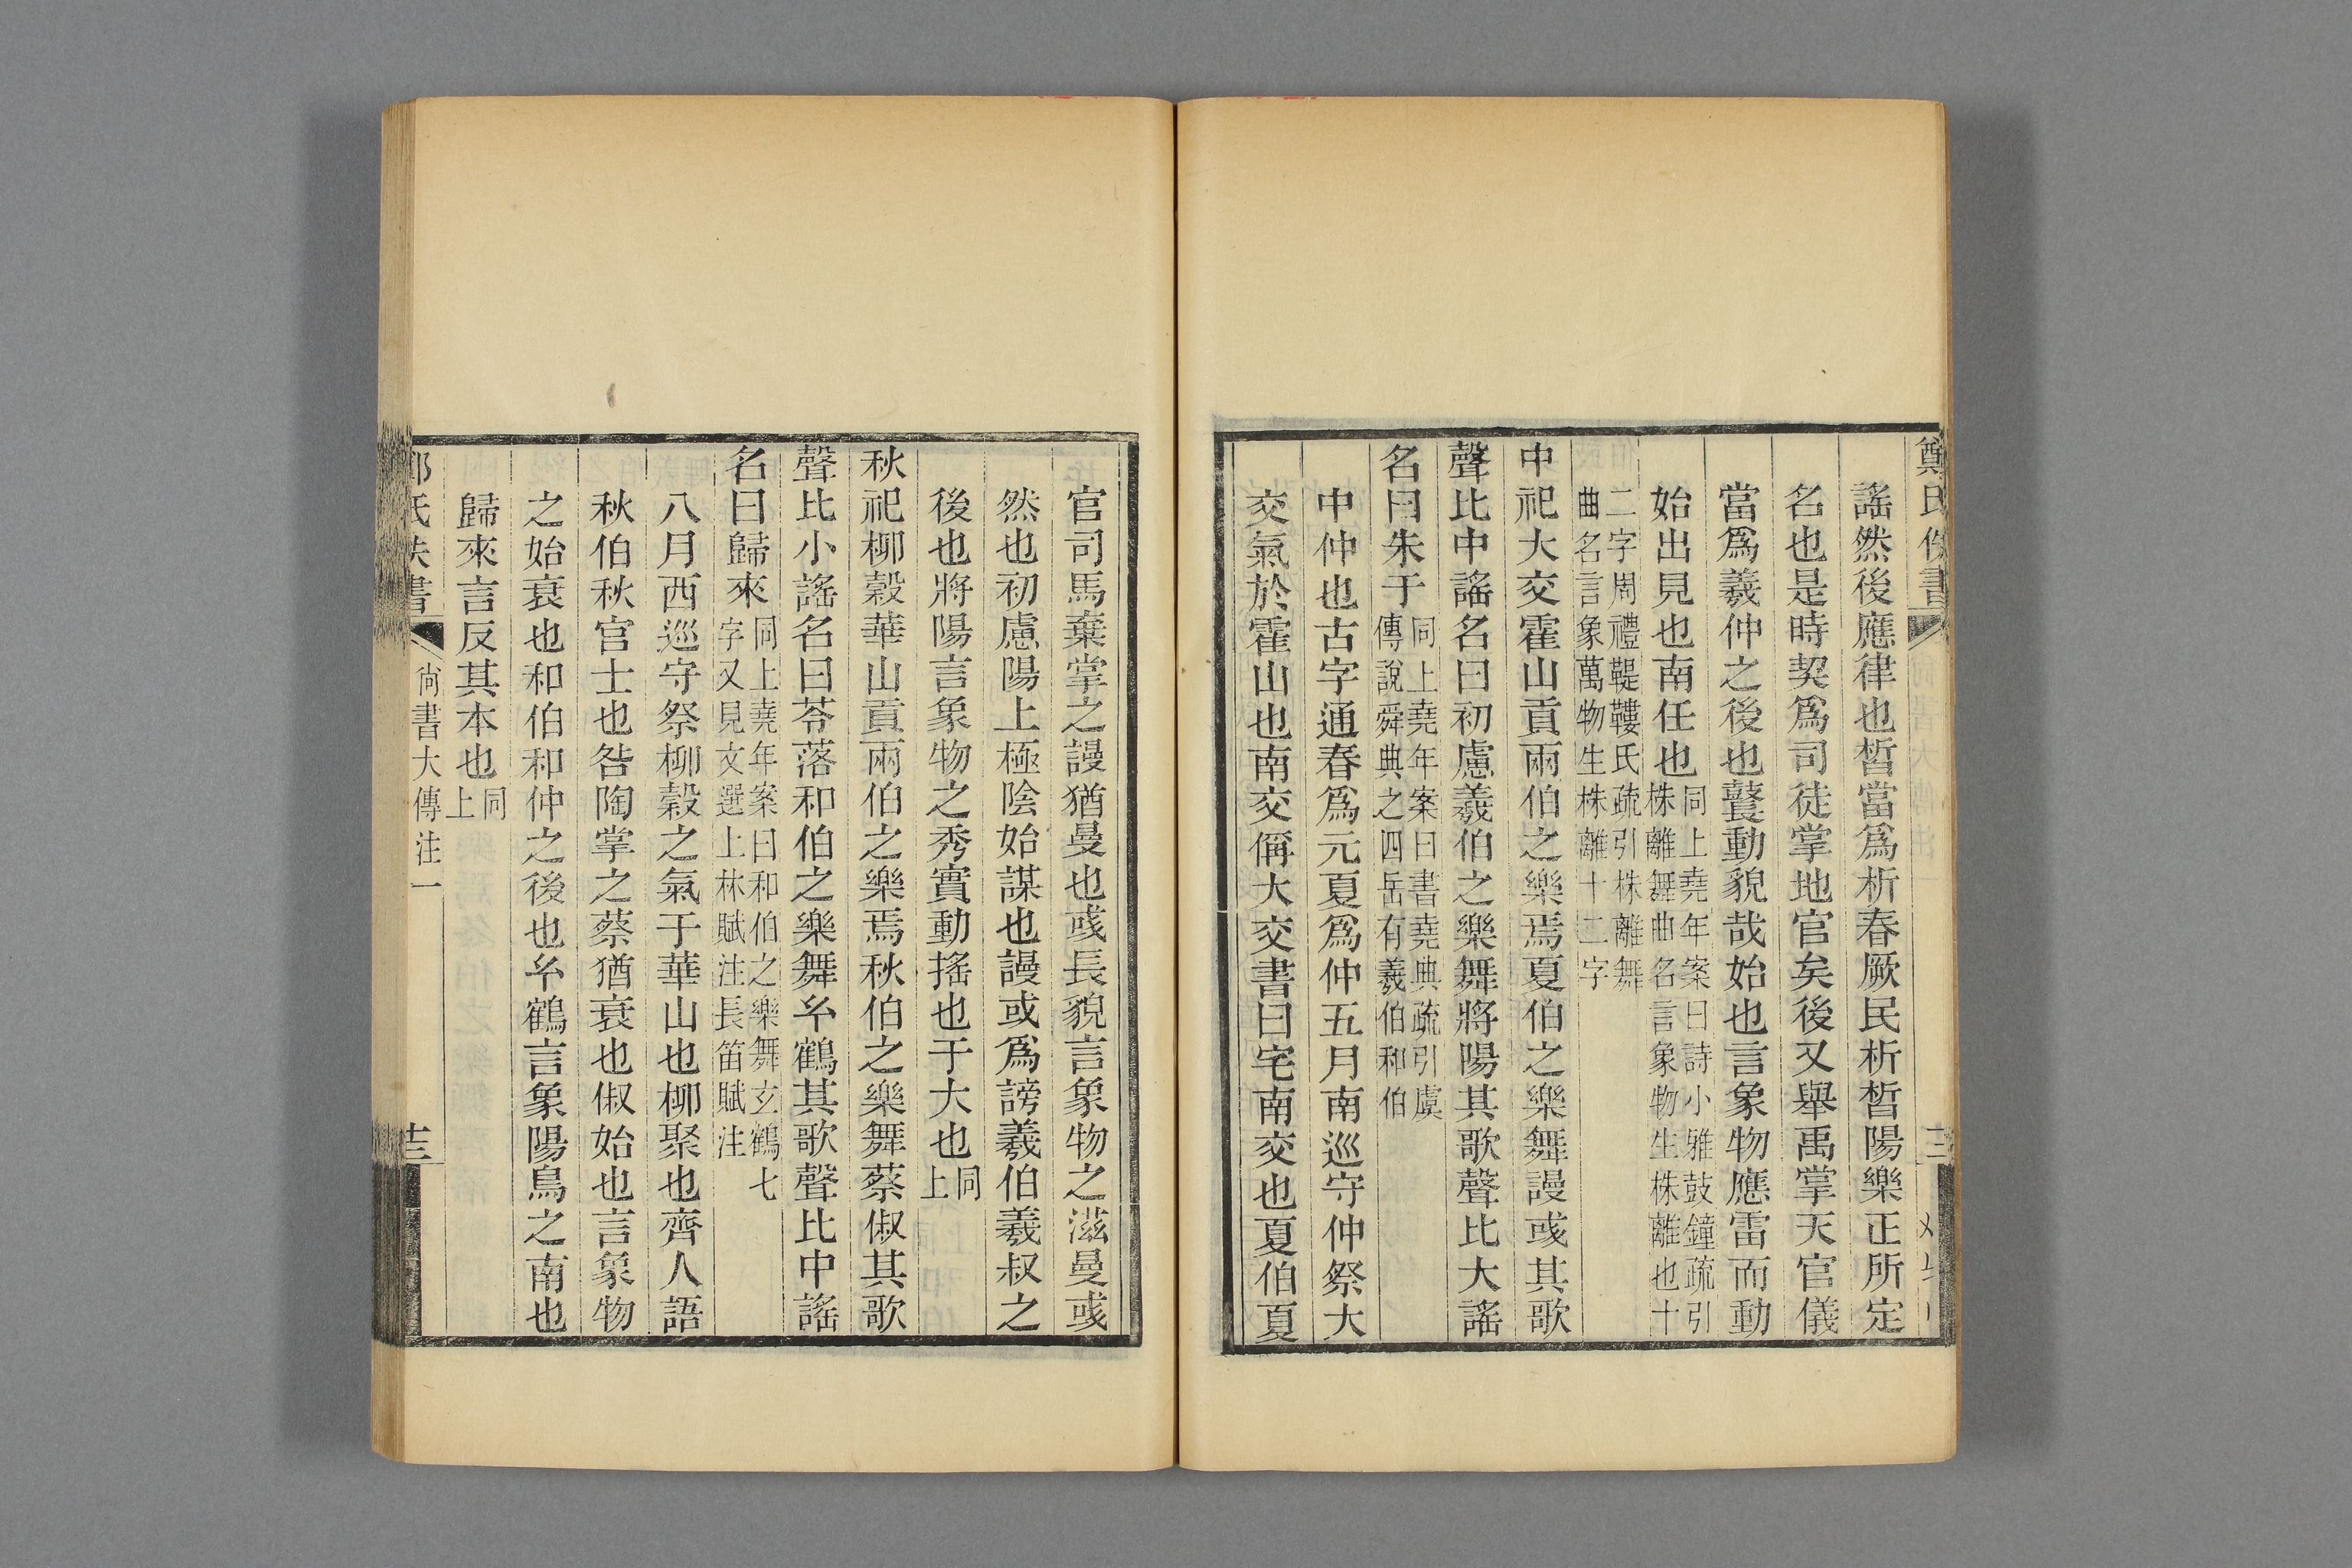 謠然後應律也晳當爲析春厥民析晳陽樂正所定
名也是時契爲司徒掌地官矣後又舉禹掌天官儀
當爲羲仲之後也鼚動貌哉始也言象物應雷而動
始出見也南任也同上堯年案曰詩小雅鼓鐘疏引株離舞曲名言象物生株離也十
二字周禮鞮鞻氏疏引株離舞曲名言象萬物生株離十二字
中祀大交霍山貢兩伯之樂焉夏伯之樂舞謾彧其歌
聲比中謠名曰初慮羲伯之樂舞將陽其歌聲比大謠
名曰朱于同上堯年案曰書堯典疏引虞傳說舜典之四岳有羲伯和伯
中仲也古字通春爲元夏爲仲五月南巡守仲祭大
交氣於霍山也南交偁大交書曰宅南交也夏伯夏
官司馬棄掌之謾猶曼也彧長貌言象物之滋曼彧
然也初慮陽上極陰始謀也謾或爲謗羲伯羲叔之
後也將陽言象物之秀實動搖也于大也同上
秋祀柳穀華山貢兩伯之樂焉秋伯之樂舞蔡俶其歌
聲比小謠名曰苓落和伯之樂舞㕕鶴其歌聲比中謠
名曰歸來同上堯年案曰和伯之樂舞玄鶴七字又見文選上林賦注長笛賦注
八月西巡守祭柳穀之氣于華山也柳聚也齊人語
秋伯秋官士也咎陶掌之蔡猶衰也俶始也言象物
之始衰也和伯和仲之後也㕕鶴言象陽鳥之南也
歸來言反其本也同上
尚書大傳注一
十三